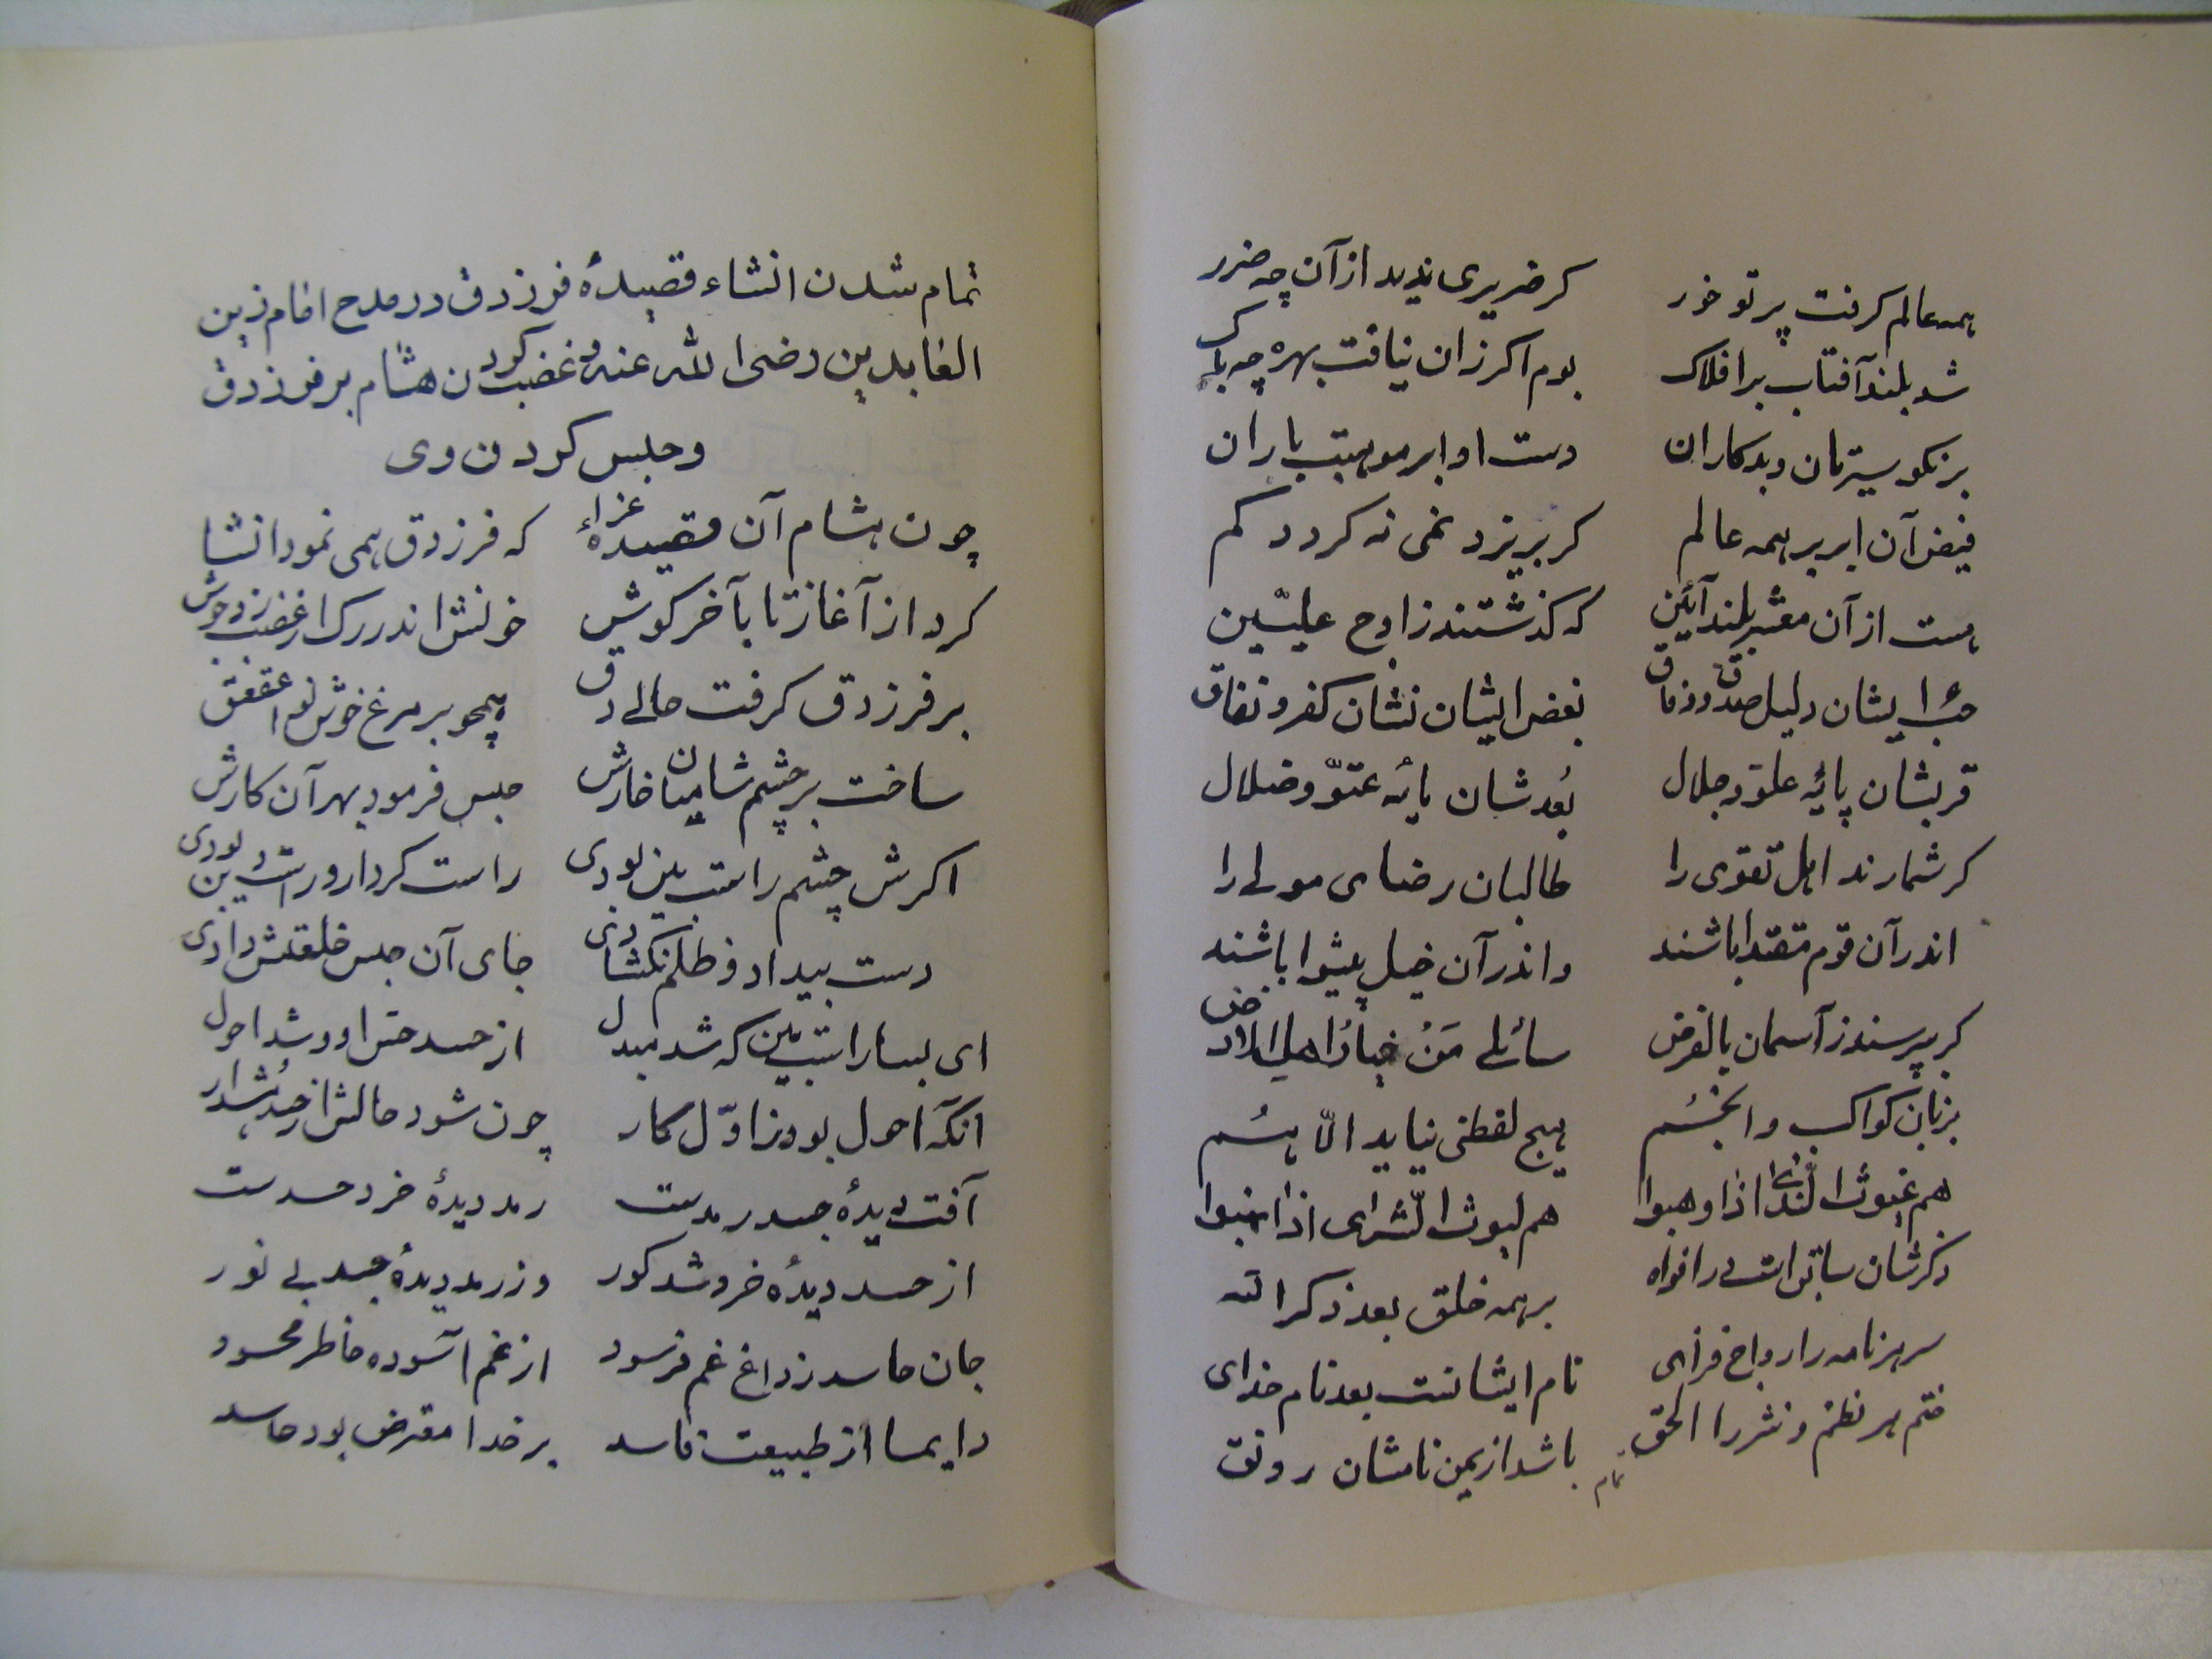 همه عالم کرفت پرتو خور کر ضریری ندید از آن چه ضرر
شد بلند آفتاب بر افلاک بوم اکر زان نیافت بهره چه باک
بر نکو سیرتان و بدکاران دست او ابر موهبت باران
فیض آن ابر بر همه عالم کر بریزد نمی نه کردد کم
هست از آن معشر بلند آئین که کذشتند ز اوج علیّین
حبّ ایشان دلیل صدق و وفاق بغض ایشان نشان کفر و نفاق
قربشان پایۀ علوّ و جلال بُعدشان مایۀ عتوّ و ضلال
کر شمارند اهل تقوی را طالبان رضای مولی را
اندر آن قوم مقتدا باشند و اندر آن خیل پیشوا باشند
کر بپرسند ز آسمان بالفرض سائلی مَنْ خیارُ اهل الارض
بزبان کواکب و انجُم هیچ لفظی نیاید الّا هُم
هم غیوث النّدی اذا وهبوا هم لیوث الشّری اذا نهبوا
ذکرشان سابق است در افواه بر همه خلق بعد ذکر الله
سر هر نامه را رواج فزای نام ایشانست بعد نام خدای
ختم هر نظم و نثر را الحق باشد از یمن نامشان رونق
تمام
تمام شدن انشاء قصیدۀ فرزدق در مدح امام زین
العابدین رضی الله عنه و غضب کردن هشام بر فرزدق
و حبس کردن وی
چون هشام آن قصیدۀ غراء که فرزدق همی نمود انشا
کرد از آغاز تا بآخر کوش خونش اندر رک از غضب زد جوش
بر فرزدق کرفت حالی دق همچو بر مرغ خوش نوا عقعق
ساخت بر چشم شامیان خارش حبس فرمود بهر آن کارش
اکرش چشم راست بین بودی راست کردار و راست دین بودی
دست بیداد و ظلم نکشادی جای آن حبس خلعتش دادی
ای بسا راست بین که شد مبدل از حسد حس او و شد احول
آنکه احول بود ز اوّل کار چون شود حالش از حسد هُشدار
آفت دیدۀ حسد رمدست رمد دیدۀ خرد حسدست
از حسد دیدۀ خرد شد کور وز رمد دیدۀ جسد بی نور
جان حاسد ز داغ غم فرسود از غم آسوده خاطر محسود
دایما از طبیعت فاسد بر خدا معترض بود حاسد